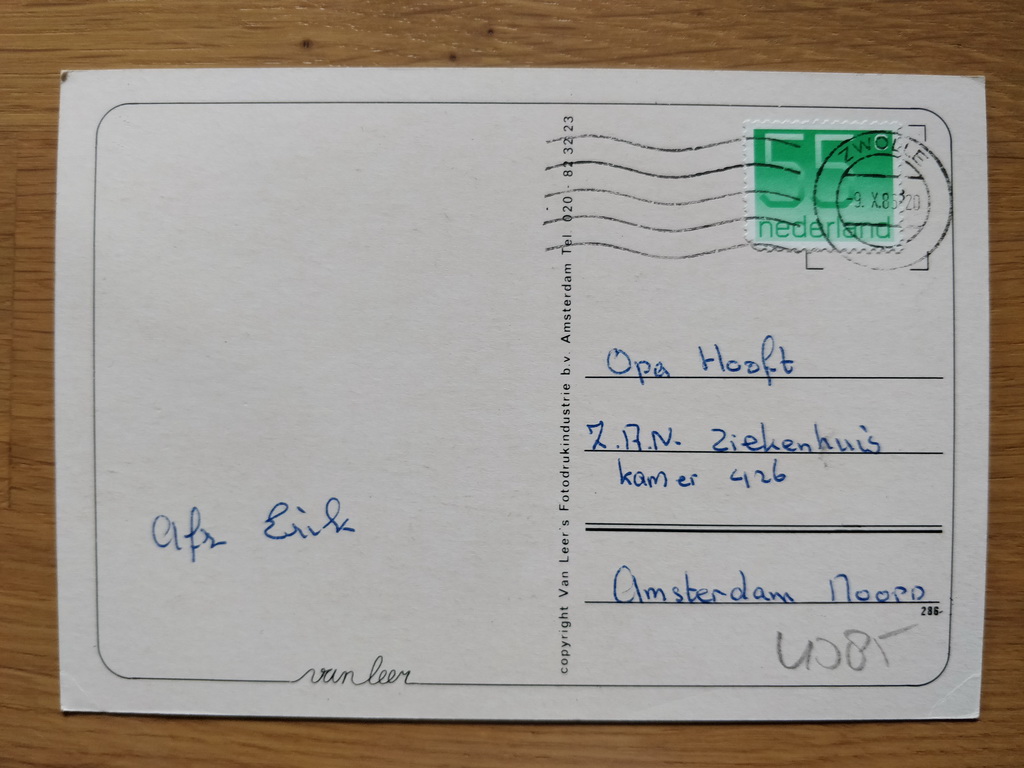 55
nederland
ZWOLLE
-9. X.85 20
copyright Van Leer's Fotodrukindustrie b.v. Amsterdam Tel. 020 - 82 32 23
Opa Hooft
Z.A.N. Ziekenhuis
kamer 426
Afz Erik
Amsterdam Noord
286-
van leer